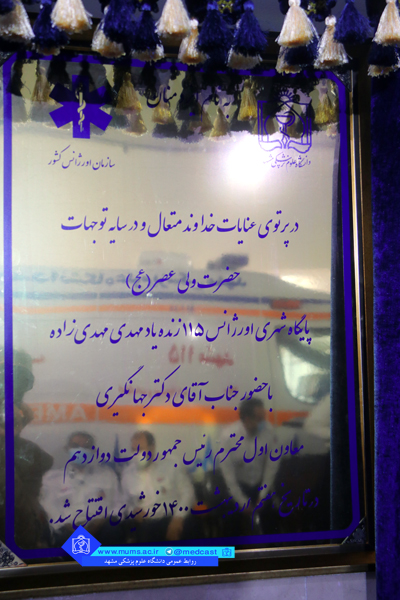 به نام
سازمان اورژانس کشور
دانشگاه علوم پزشکی مشهد
در پرتوی عنایات خداوند متعال و در سایه توجهات
حضرت ولی عصر(عج)
پایگاه شهری اورژانس ۱۱۵ زنده یاد مهدی مهدی زاده
با حضور جناب آقای دکتر جهانگیری
معاون اول محترم رئیس جمهور دولت دوازدهم
اردیبهشت ۱۴۰۰ خورشیدی افتتاح شد.
www.mums.ac.ir @medcast
روابط عمومی دانشگاه علوم پزشکی مشهد